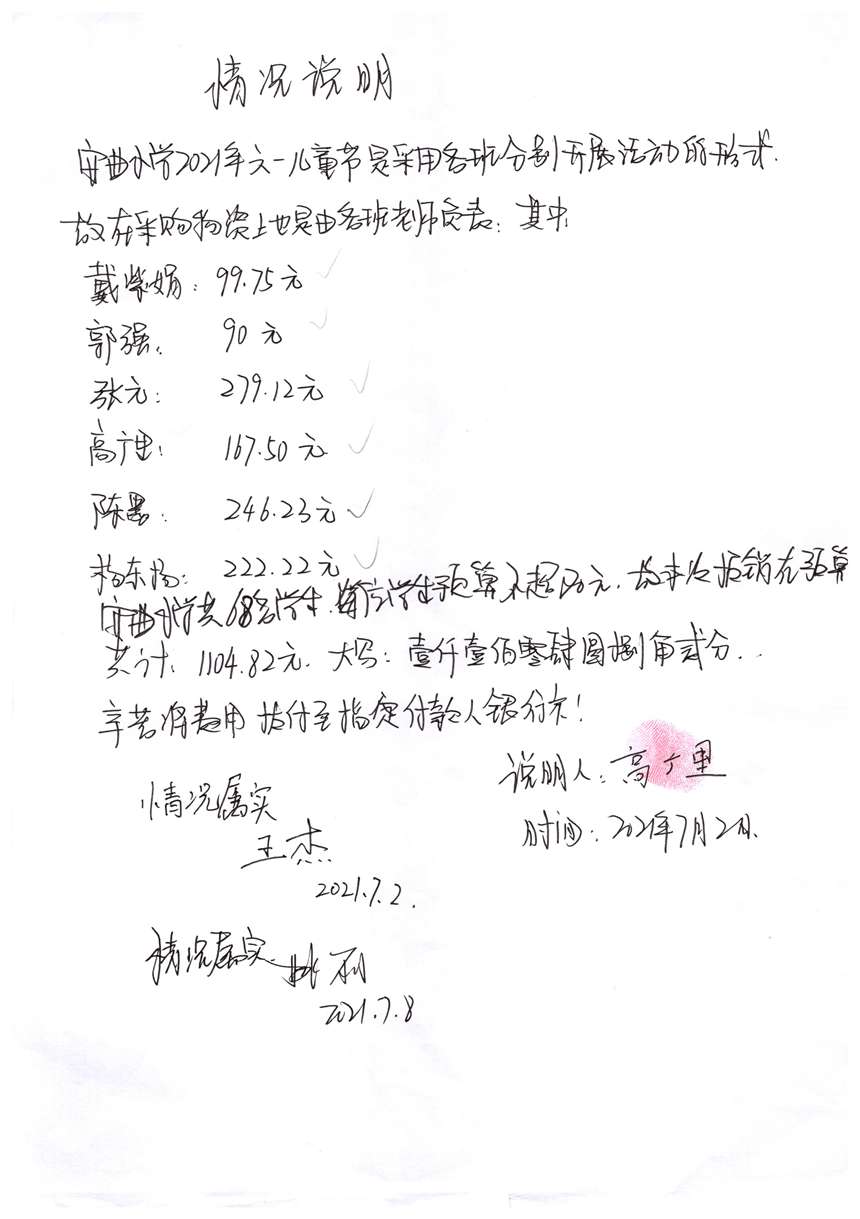 情况说明
守曲小学2021年六一儿童节是采用各班分别开展活动的形式.
故在采购物资上也是由各班老师负责：其中
戴紫娟：99.75元
郭强： 90元
张元： 279.12元
高广里： 167.50元
陈墨： 246.23元
杨东杨： 222.22元
守曲小学共68名学生.每位学生预算不超20元.故本次报销在预算
共计：1104.82元.大写：壹仟壹佰零肆圆捌角贰分..
辛苦将费用拨付至指定付款人银行卡！
说明人：高广里
时间：2021年7月2日.
情况属实
王杰
2021.7.2.
情况属实.
2021.7.8